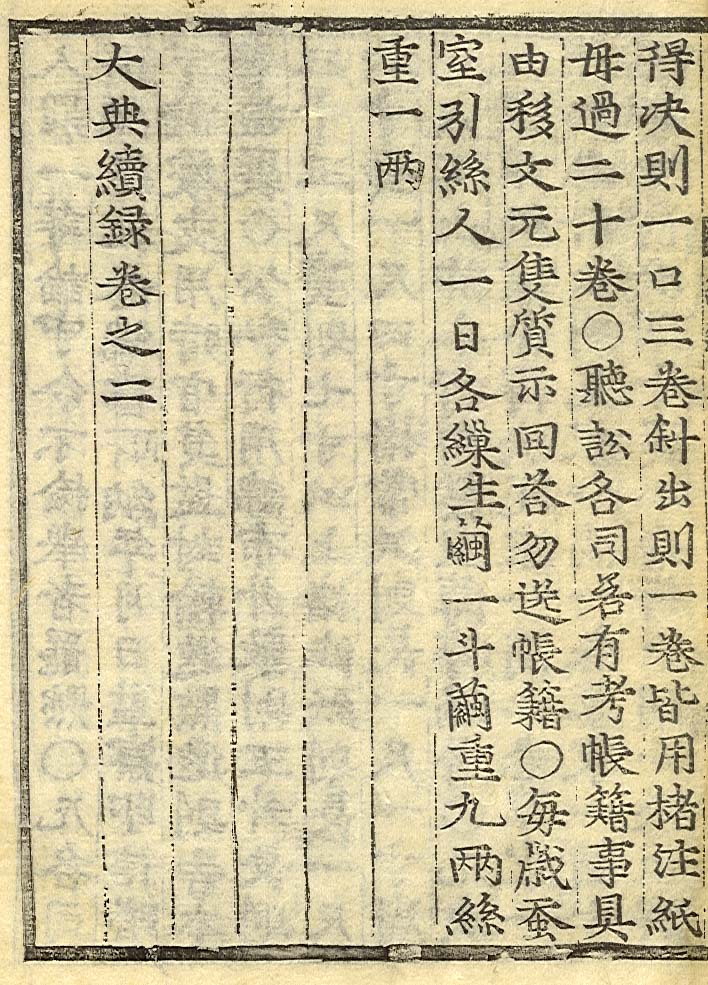 得決則一口三卷斜出則一卷皆用楮注紙
毋過二十卷○聽訟各司若有考帳籍事具
由移文元隻質示回荅勿送帳籍○每歲蚕
室引絲人一日各繅生繭一斗繭重九兩絲
重一兩
大典續録卷之二